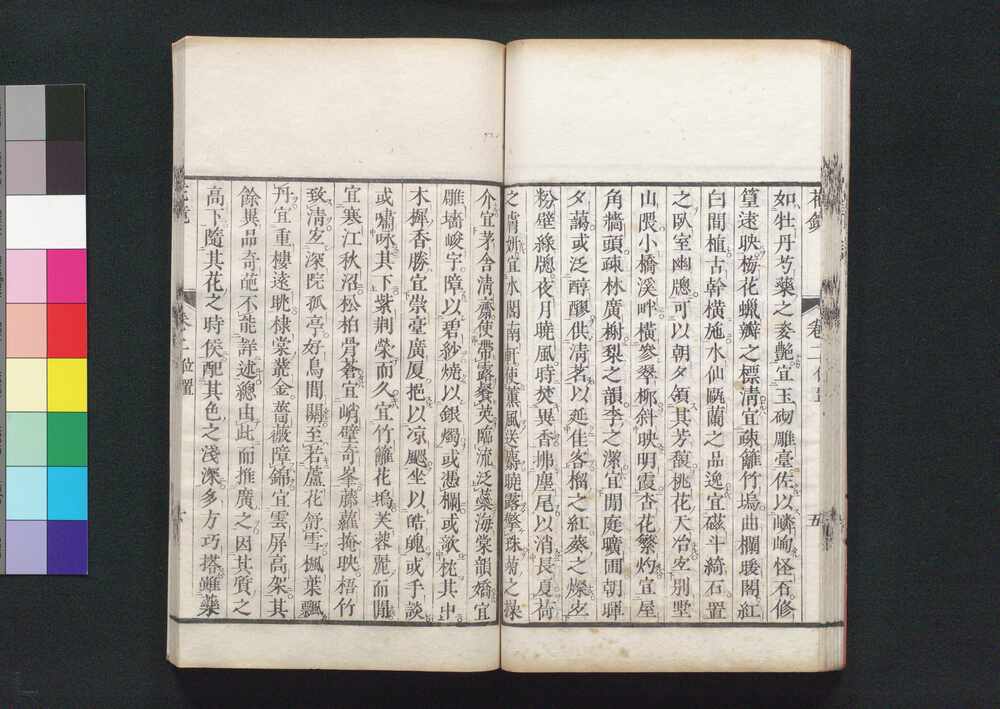 花鏡 卷二位置 五
如牡丹芍藥之姿艶宜玉砌雕臺佐以嶙峋怪石修
篁遠映梅花蠟瓣之標清宜疎籬竹塢曲欄暖閣紅
白間植古幹橫施水仙甌蘭之品逸宜磁斗綺石置
之臥室幽牕可以朝夕領其芳馥桃花夭冶宜別墅
山隈小橋溪畔橫參翠柳斜映明霞杏花繁灼宜屋
角牆頭疎林廣榭梨之韻李之潔宜閒庭曠圃朝暉
夕藹或泛醇醪供清茗以延佳客榴之紅葵之燦宜
粉壁綠牕夜月曉風時焚異香拂塵尾以消長夏荷
之膚妍宜水閣南軒使薰風送麝曉露擎珠菊之操
介宜茅舍清齋使帶露餐英臨流泛蘂海棠韻嬌宜
雕墻峻宇障以碧紗燒以銀燭或憑欄或欹枕其中
木樨香勝宜崇臺廣厦挹以凉颸坐以皓魄或手談
或嘯咏其下紫荊榮而久宜竹籬花塢芙蓉麗而閒
宜寒江秋沼松柏骨蒼宜峭壁奇峯藤蘿掩映梧竹
致清宜深院孤亭好鳥間關至若蘆花舒雪楓葉飄
丹宜重樓遠眺棣棠叢金薔薇障錦宜雲屏高架其
餘異品奇葩不能詳述總由此而推廣之因其質之
高下隨其花之時候配其色之淺深多方巧搭雖藥
花鏡 卷二位置